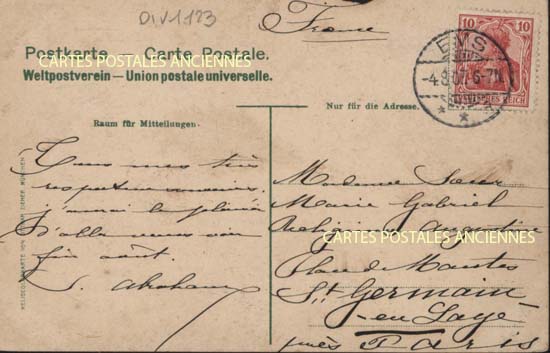 DIV1123
France
Postkarte — Carte Postale.
Weltpostverein — Union postale universelle.
10 10
EMS
-4.8.07.6-7N.
DEUTSCHES REICH
CARTES POSTALES ANCIENNES
Nur für die Adresse.
Raum für Mitteilungen.
Tous mes très
respectueux
j'aurai le plaisir
d'aller vous voir
fin août.
Madame Sœur
Marie Gabriel
CARTES POSTALES ANCIENNES
CARTES POSTALES ANCIENNES
St Germain
en Laye
près Paris